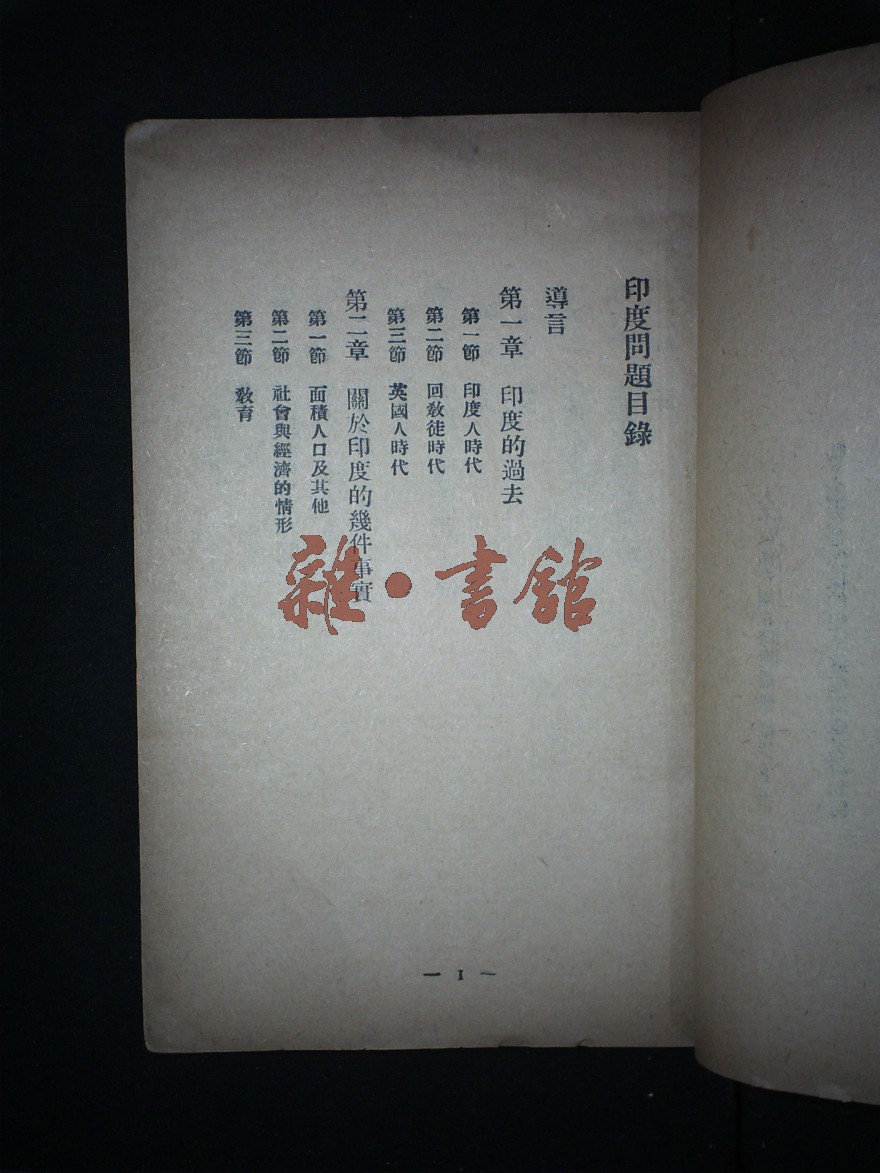 印度問題目錄
導言
第一章 印度的過去
第一節 印度人時代
第二節 回教徒時代
第三節 英國人時代
第二章 關於印度的幾件事實
第一節 面積人口及其他
第二節 社會與經濟的情形
第三節 教育
— 1 —
雜·書館